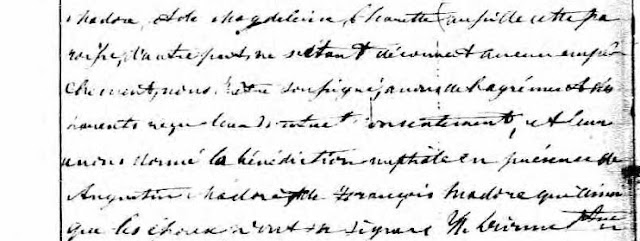 Madore, et de Magdeleine Charette aussi de cette pa
roisse, d'autre part, ne s'étant découvert aucun empê
chement, nous Prêtre soussigné, avons de l'agrément des
parents reçu leur mutuel consentement, et leur
avons donné la bénédiction nuptiale en présence de
Augustin Madore et de François Madore qui ainsi
que les époux n'ont su signer